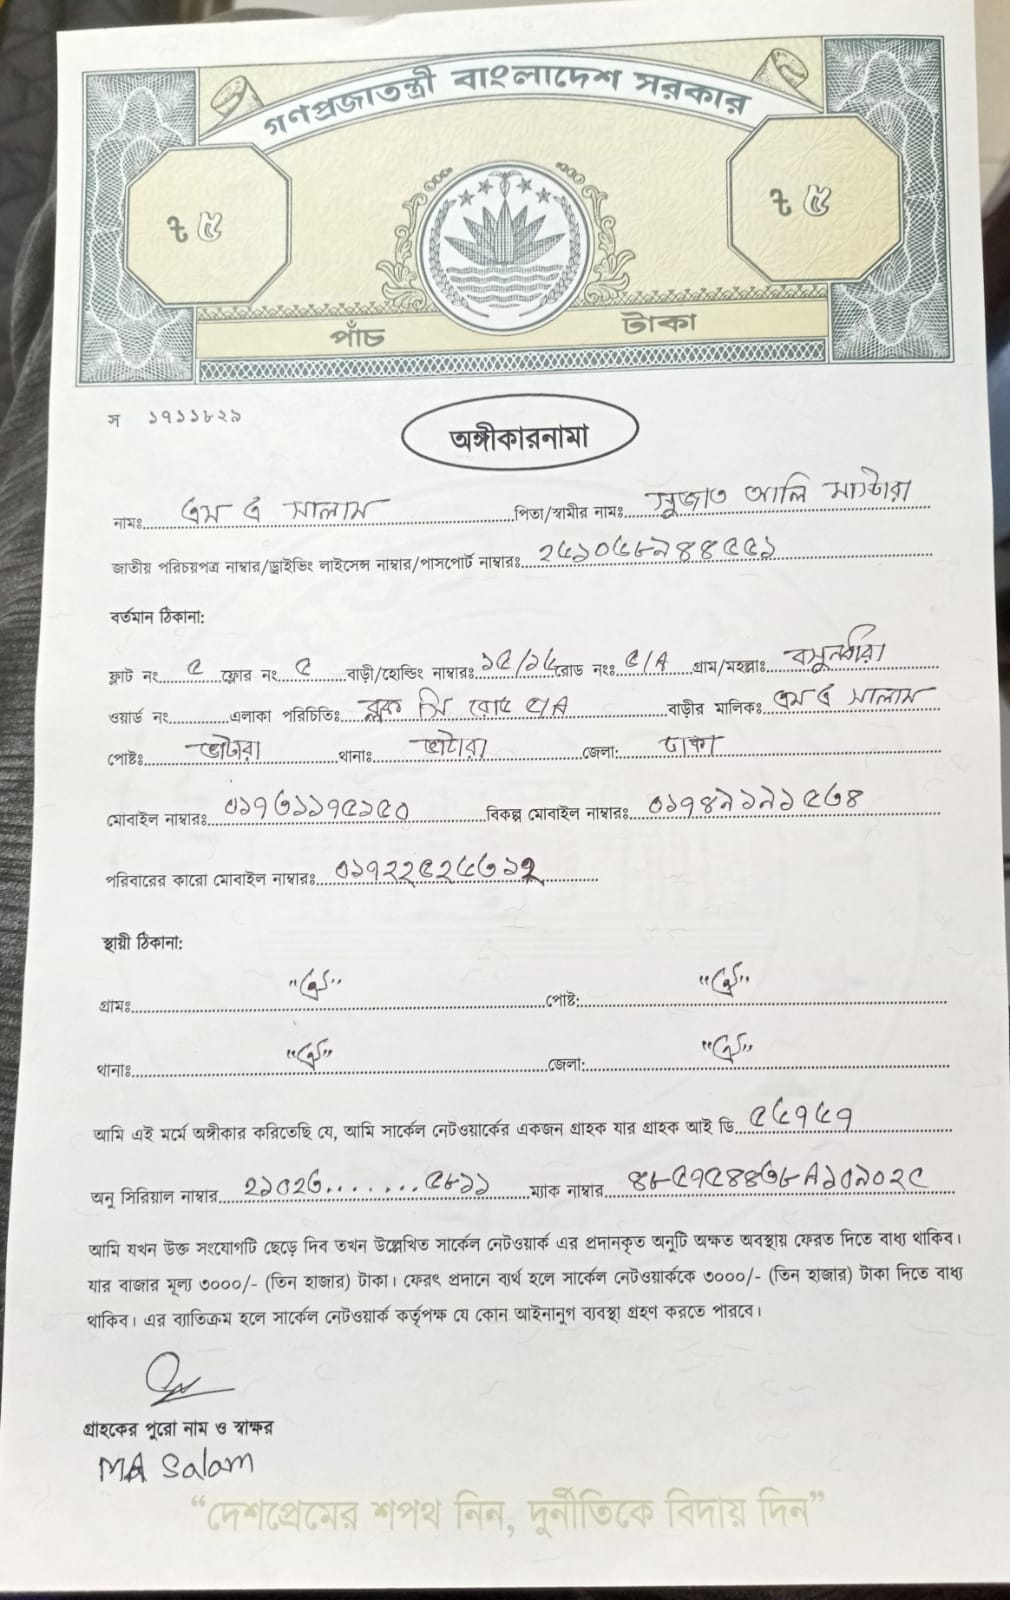 গণপ্রজাতন্ত্রী বাংলাদেশ সরকার
৳ ৫
৳ ৫
পাঁচ টাকা
স ১৭১১৮২৯
অঙ্গীকারনামা
নামঃ এম এ সালাম পিতা/স্বামীর নামঃ সুজাত আলি
জাতীয় পরিচয়পত্র নাম্বার/ড্রাইভিং লাইসেন্স নাম্বার/পাসপোর্ট নাম্বারঃ
বর্তমান ঠিকানা:
ফ্লাট নং ৫ ফ্লোর নং ৫ বাড়ী/হোল্ডিং নাম্বারঃ ১৫/১৬ রোড নংঃ ৫/A গ্রাম/মহল্লাঃ বসুন্ধরা
ওয়ার্ড নং এলাকা পরিচিতিঃ ব্লক সি রোড ৫/A বাড়ীর মালিকঃ এম এ সালাম
পোষ্টঃ ভাটারা থানাঃ ভাটারা জেলা: ঢাকা
মোবাইল নাম্বারঃ ০১৭৩১১৭৫১৫০ বিকল্প মোবাইল নাম্বারঃ ০১৭৪৯১৯১৫৩৪
পরিবারের কারো মোবাইল নাম্বারঃ
স্থায়ী ঠিকানা:
গ্রামঃ "ঐ" পোষ্ট: "ঐ"
থানাঃ "ঐ" জেলা: "ঐ"
আমি এই মর্মে অঙ্গীকার করিতেছি যে, আমি সার্কেল নেটওয়ার্কের একজন গ্রাহক যার গ্রাহক আই ডি ৫৬৭৬৭
অনু সিরিয়াল নাম্বার ২১০২৩........৫৮১১ ম্যাক নাম্বার
আমি যখন উক্ত সংযোগটি ছেড়ে দিব তখন উল্লেখিত সার্কেল নেটওয়ার্ক এর প্রদানকৃত অনুটি অক্ষত অবস্থায় ফেরত দিতে বাধ্য থাকিব।
যার বাজার মূল্য ৩০০০/- (তিন হাজার) টাকা। ফেরৎ প্রদানে ব্যর্থ হলে সার্কেল নেটওয়ার্ককে ৩০০০/- (তিন হাজার) টাকা দিতে বাধ্য
থাকিব। এর ব্যাতিক্রম হলে সার্কেল নেটওয়ার্ক কর্তৃপক্ষ যে কোন আইনানুগ ব্যবস্থা গ্রহণ করতে পারবে।
গ্রাহকের পুরো নাম ও স্বাক্ষর
MA Salam
"দেশপ্রেমের শপথ নিন, দুর্নীতিকে বিদায় দিন"